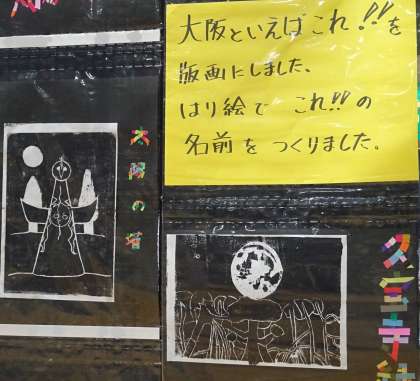 大阪といえばこれ!!を
版画にしました。
はり絵で これ!!の
名前を つくりました。
太陽の塔
久宝寺緑